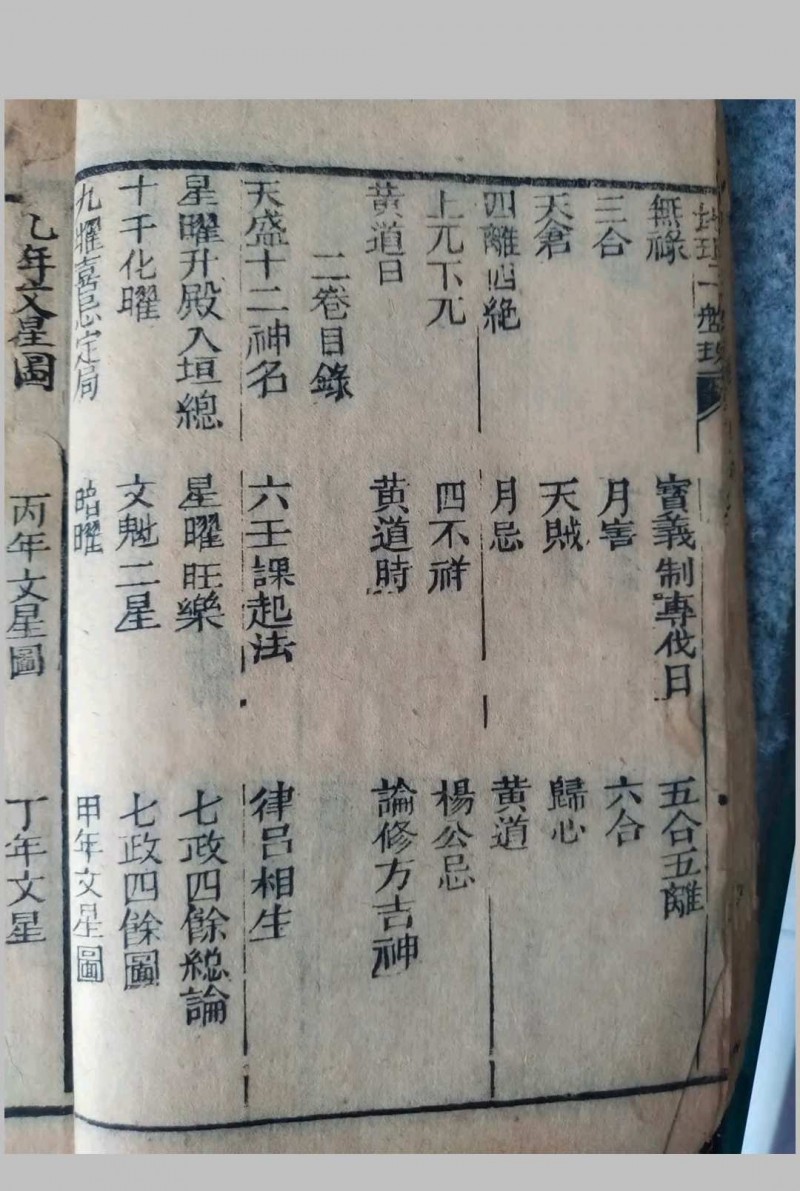 無祿 寳義制專伐日 五合五離
三合 月害 六合
天倉 天賊 歸心
四離四絶 月忌 黄道
上兀下兀 四不祥 楊公忌
黄道日 黄道時 論修方吉神
二卷目錄
天盛十二神名 六壬課起法 律吕相生
星曜升殿入垣總 星曜旺樂 七政四餘総論
十干化曜 文魁二星 七政四餘圖
九曜喜忌定局 曜 甲年文星圖
年文星圖 丙年文星圖 丁年文星